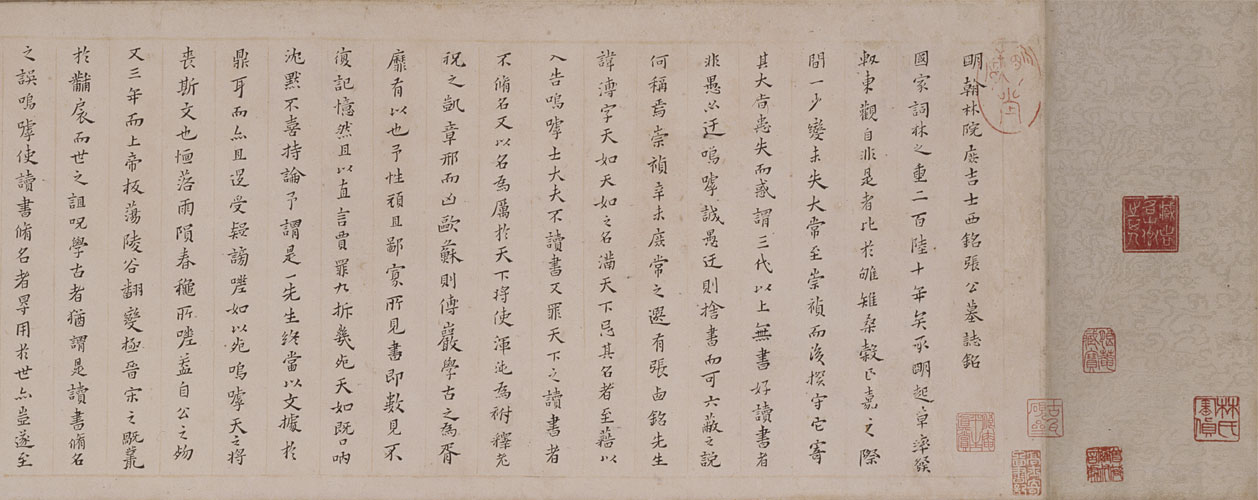 明翰林院庶吉士西銘張公墓誌銘
國家詞林之重二百陸十年矣承明起草率繇
東觀自非是者比於雊雉桑榖正嘉之際
間一少變未失大常至崇禎而後揆守它寄
其大肯患失而惑謂三代以上無書好讀書者
非愚必迂嗚嘑誠愚迂則捨書而可六蔽之說
何稱焉崇禎辛未庶常之選有張西銘先生
諱溥字天如天如之名滿天下忌其名者至藉以
入告嗚嘑士大夫不讀書又罪天下之讀書者
不脩名又以名為厲於天下將使渾沌為祔釋老
祝之凱章邢而凶歐蘇則傅巖學古之為胥
靡有以也予性頑且鄙寡所見書即數見不
復記憶然且以直言賈罪九折彝宛天如既口吶
沈默不喜持論予謂是一先生終當以文據於
鼎耳而亦且逕受疑謗噬如以宛嗚嘑天之將
喪斯文也恒落雨隕春穐所噬蓋自公之歿
又三年而上帝板蕩陵谷翻變極晉宋之
於黼扆而世之詛呪學古者猶謂是讀書脩名
之誤嗚嘑使讀書脩名者畧用於世亦豈遂至
林氏書貨